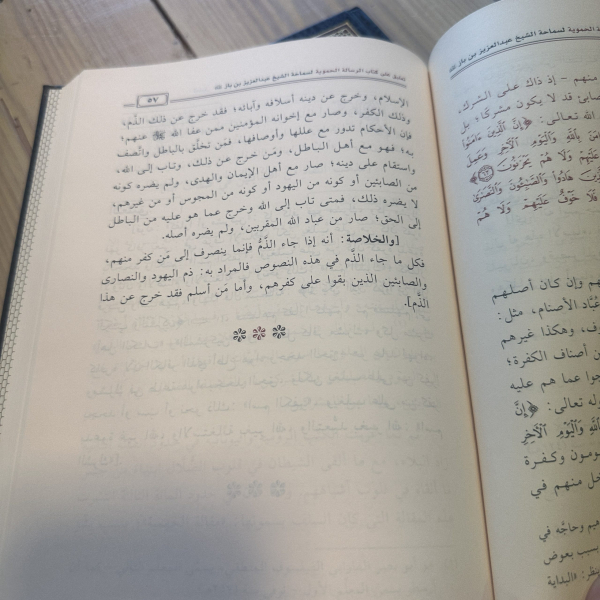 تعليق على كتاب الرسالة الحموية لسماحة الشيخ عبدالعزيز بن باز
٥٧
الإسلام، وخرج عن دينه أسلافه وآبائه؛ فقد خرج عن ذلك الذَّم،
وذلك الكفر، وصار مع إخوانه المؤمنين ممن عفا الله عنهم؛
فإن الأحكام تدور مع عللها وأوصافها، فمَن تخلَّق بالباطل واتَّصف
به؛ فهو مع أهل الباطل، ومَن خرج عن ذلك، وتاب إلى الله،
واستقام على دينه؛ صار مع أهل الإيمان والهدى، ولم يضره كونه
من الصابئين أو كونه من اليهود أو كونه من المجوس أو من غيرهم،
لا يضره ذلك، فمتى تاب إلى الله وخرج عما هو عليه من الباطل
إلى الحق؛ صار من عباد الله المقربين، ولم يضره أصله.
[والخلاصة: أنه إذا جاء الذَّمُّ فإنما ينصرف إلى مَن كفر منهم،
فكل ما جاء الذَّم في هذه النصوص فالمراد به: ذم اليهود والنصارى
والصابئين الذين بقوا على كفرهم، وأما مَن أسلم فقد خرج عن هذا
الذَّم].
الحموية لسماحة الشيخ عبدالعزيز بن باز
منهم - إذ ذاك على الشرك،
صابئ قد لا يكون مشركًا؛ بل
الله تعالى: ﴿إِنَّ ٱلَّذِينَ ءَامَنُوا۟
بِٱللَّهِ وَٱلْيَوْمِ ٱلْءَاخِرِ وَعَمِلَ
عَلَيْهِمْ وَلَا هُمْ يَحْزَنُونَ﴾
هَادُوا۟ وَٱلصَّـٰبِـُٔونَ وَٱلنَّصَـٰرَىٰ
فَلَا خَوْفٌ عَلَيْهِمْ وَلَا هُمْ
هم وإن كان أصلهم
عُبَّاد الأصنام، مثل:
وهكذا غيرهم
من أصناف الكفرة؛
عما هم عليه
قوله تعالى: ﴿إِنَّ
بِٱللَّهِ وَٱلْيَوْمِ ٱلْءَاخِرِ
وكفرة
منهم في
وحاجَّه في
بسبب بعوض
«البداية